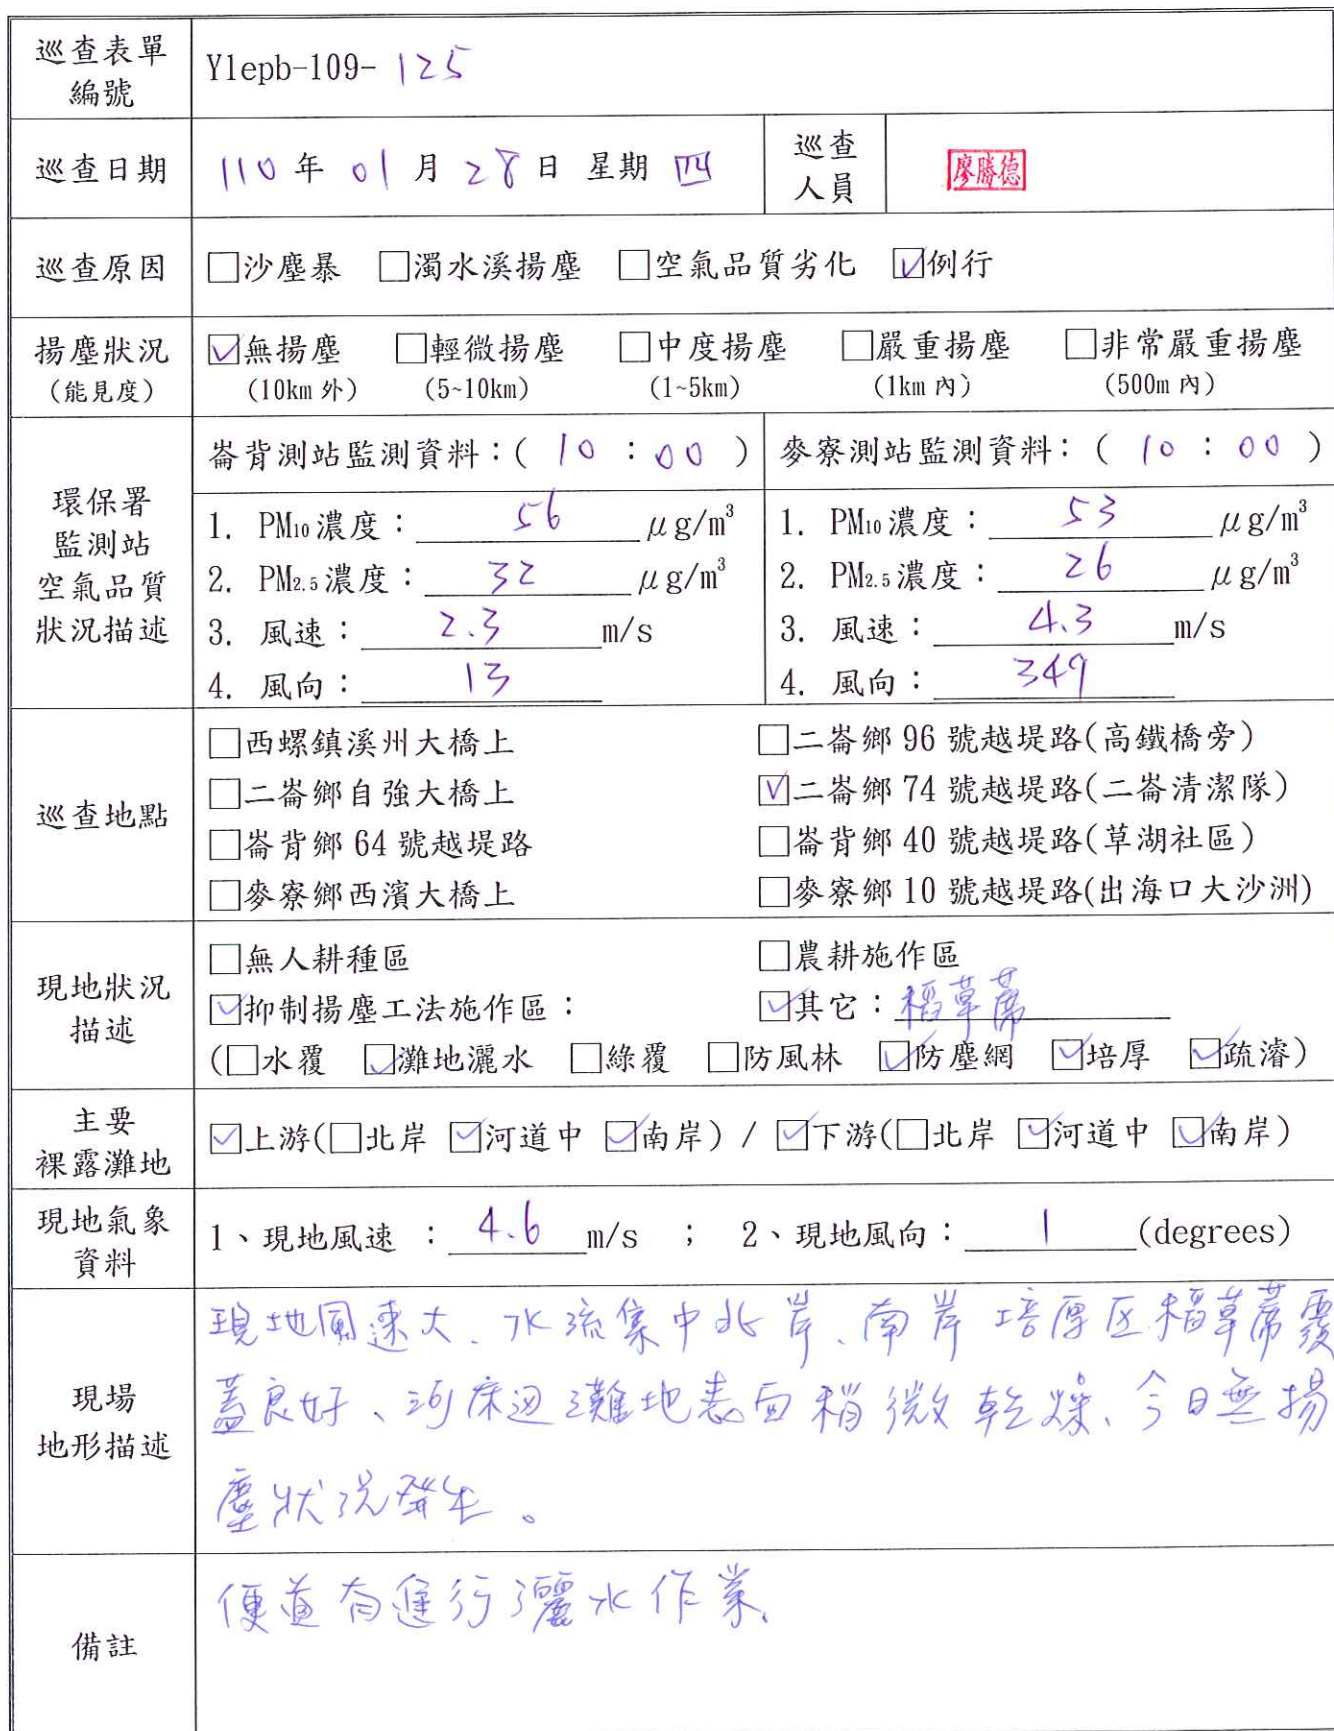 巡查表單
編號
Ylepb-109-125
巡查日期
110年01月28日 星期四
巡查
人員
廖勝德
巡查原因
□沙塵暴 □濁水溪揚塵 □空氣品質劣化 ☑例行
揚塵狀況
(能見度)
☑無揚塵 □輕微揚塵 □中度揚塵 □嚴重揚塵 □非常嚴重揚塵
(10km 外) (5~10km) (1~5km) (1km 內) (500m 內)
環保署
監測站
空氣品質
狀況描述
崙背測站監測資料：( 10 : 00 )
1. PM10濃度： 56 μg/m³
2. PM2.5濃度： 32 μg/m³
3. 風速： 2.3 m/s
4. 風向： 13
麥寮測站監測資料： ( 10 : 00 )
1. PM10濃度： 53 μg/m³
2. PM2.5濃度： 26 μg/m³
3. 風速： 4.3 m/s
4. 風向： 349
巡查地點
□西螺鎮溪州大橋上 □二崙鄉 96 號越堤路(高鐵橋旁)
□二崙鄉自強大橋上 ☑二崙鄉 74 號越堤路(二崙清潔隊)
□崙背鄉 64 號越堤路 □崙背鄉 40 號越堤路(草湖社區)
□麥寮鄉西濱大橋上 □麥寮鄉 10 號越堤路(出海口大沙洲)
現地狀況
描述
□無人耕種區 □農耕施作區
☑抑制揚塵工法施作區： ☑其它：稻草蓆
(□水覆 ☑灘地灑水 □綠覆 □防風林 ☑防塵網 ☑培厚 ☑疏濬)
主要
裸露灘地
☑上游(□北岸 ☑河道中 ☑南岸) / ☑下游(□北岸 ☑河道中 ☑南岸)
現地氣象
資料
1、現地風速 ： 4.6 m/s ； 2、現地風向： 1 (degrees)
現場
地形描述
現地風速大、水流集中北岸、南岸培厚区稻草蓆覆
蓋良好、河床边灘地表面稍微乾燥、今日無揚
塵狀況發生。
備註
便道有進行灑水作業、